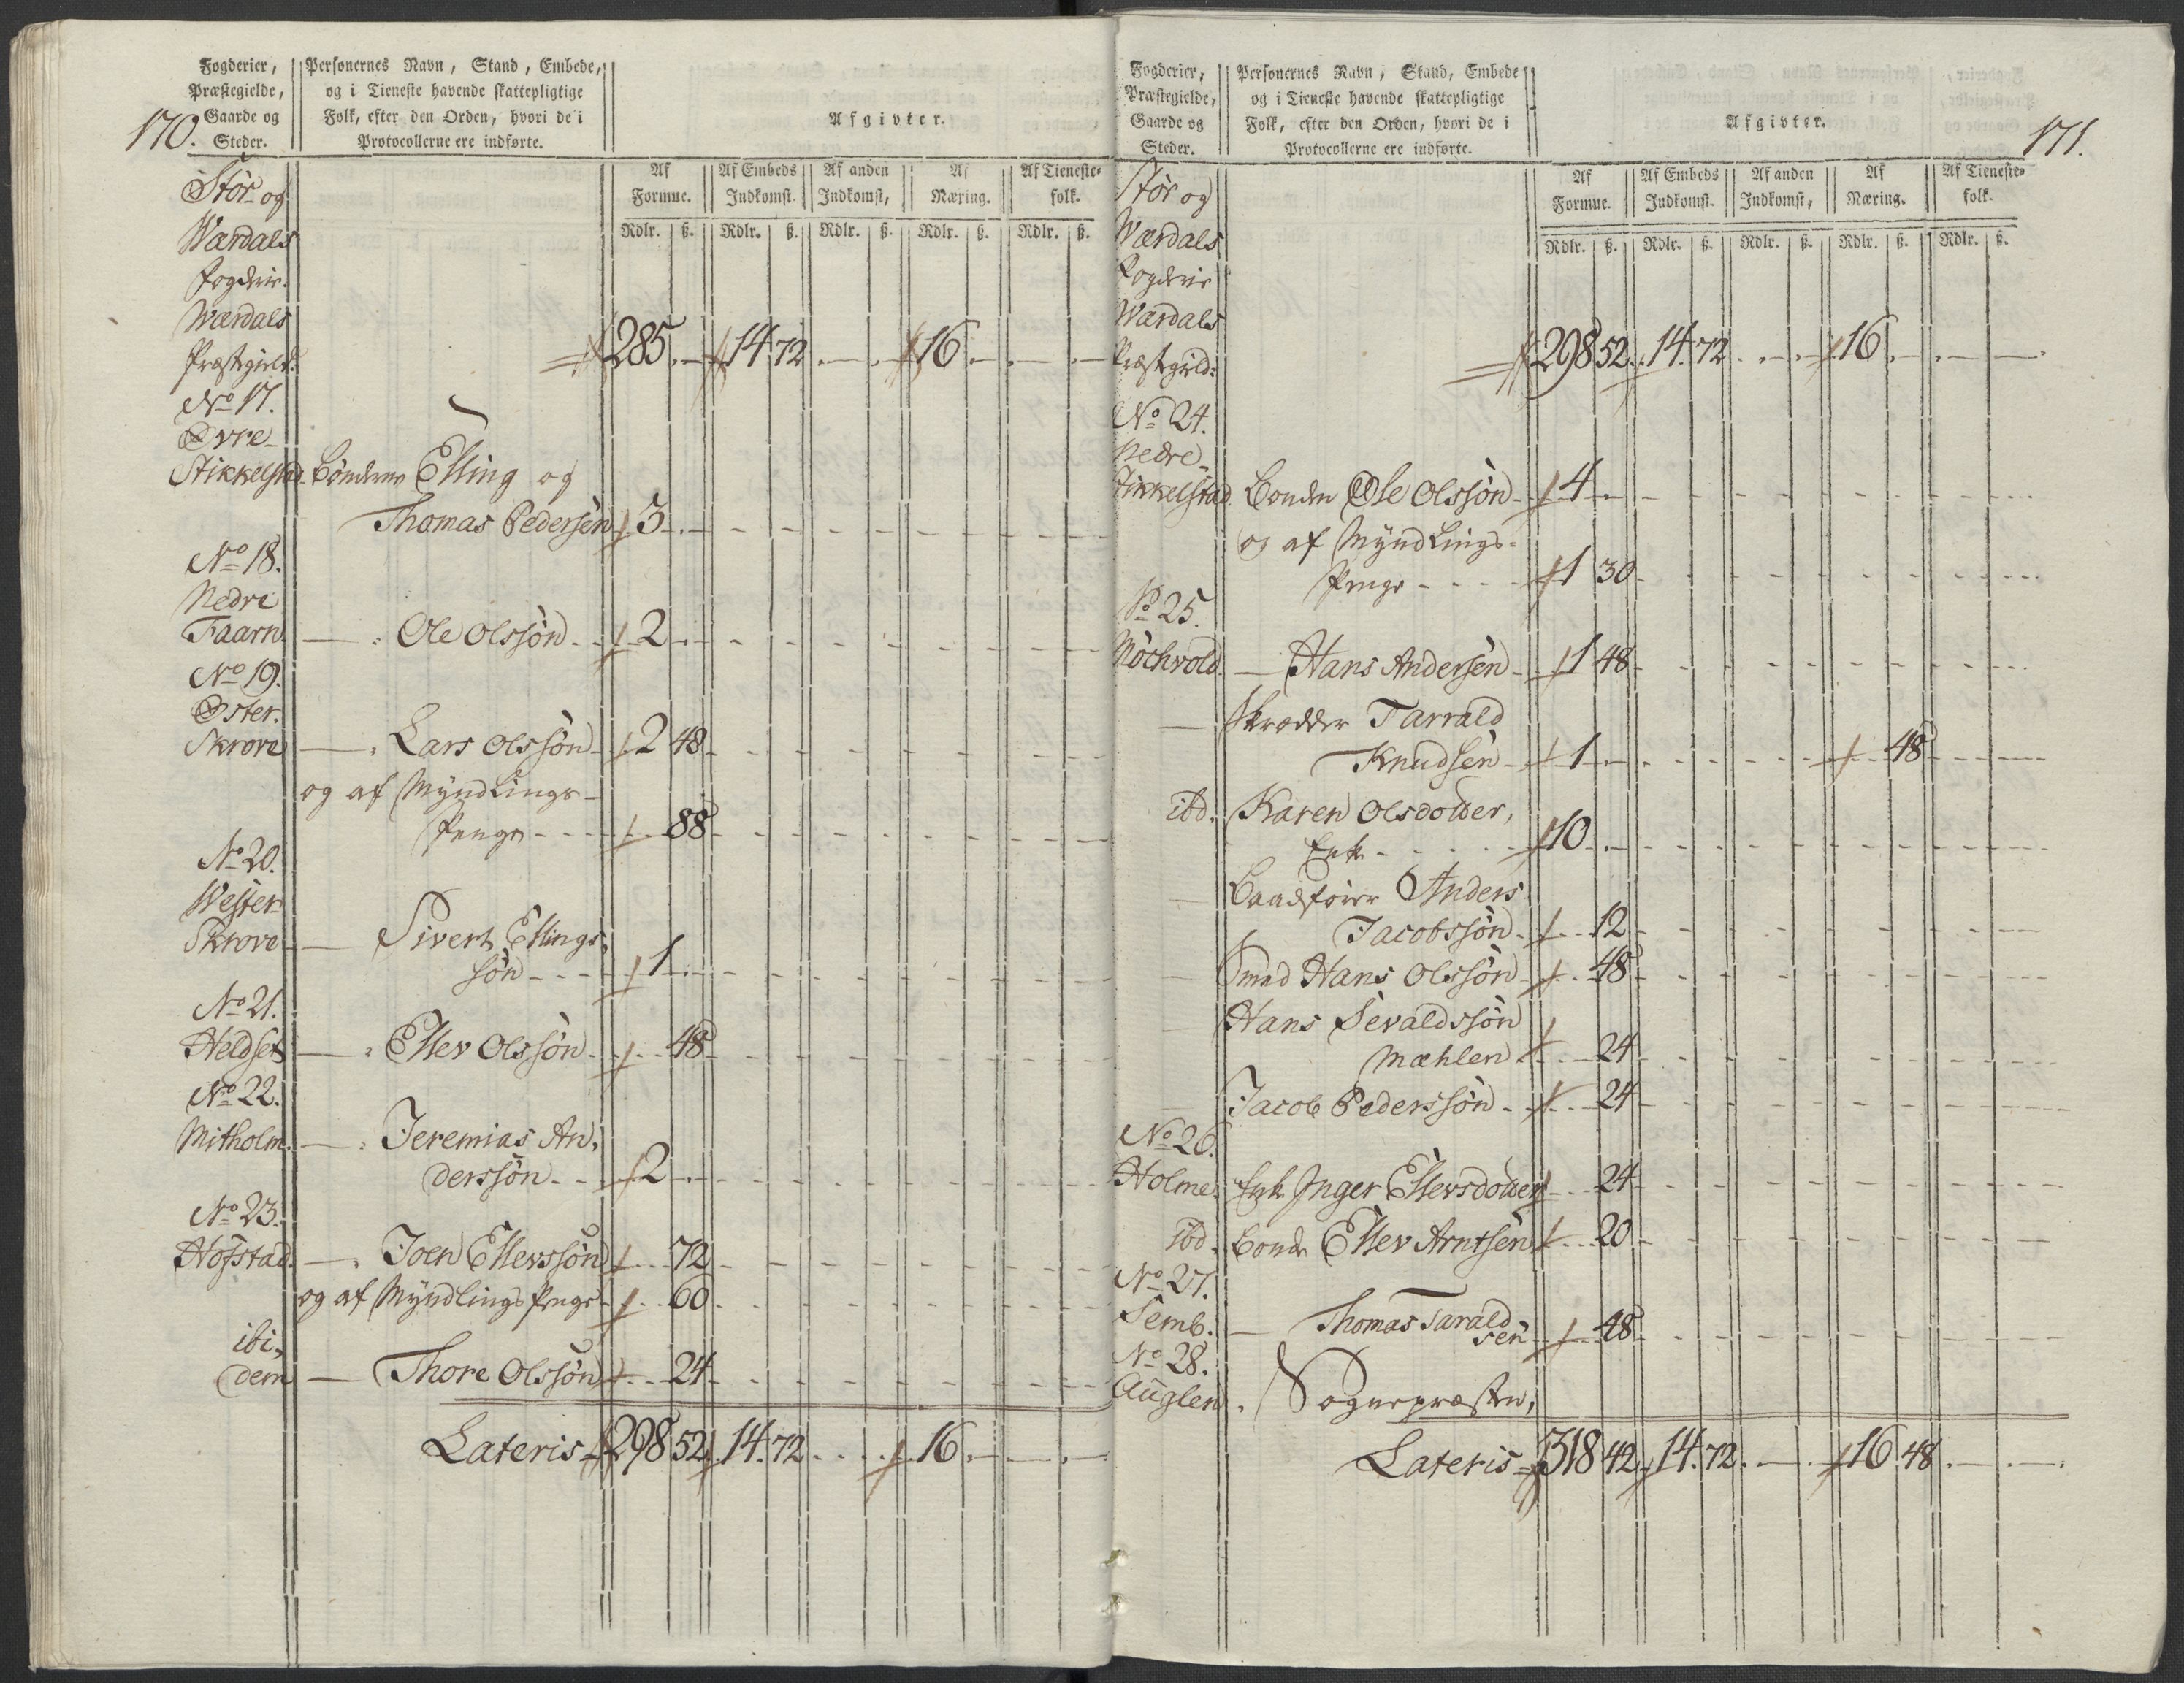 170.
Fogderier,
Præstegielde,
Gaarde og
Steder.
Personernes Navn, Stand, Embede,
og i Tieneste havende skattepligtige
Folk, efter den Orden, hvori de i
Protocollerne ere indførte.
Afgivter.
Af Formue. Af Embeds Indkomst. Af anden Indkomst, Af Næring. Af Tieneste- folk.
Rdlr. ß. Rdlr. ß. Rdlr. ß. Rdlr. ß. Rdlr. ß.
Stör og
Wærdals
Fogderie.
Wærdals
Præstegield: 285. — 14. 72. — . 16. — . — . —
No 17.
Øvre-
Stikkelstad. Bönderne Elling og
Thomas Pedersen 3. —
No 18.
Nedre
Faarn. — Ole Olssön 2. —
No 19.
Øster.
Skrove — Lars Olssön 2 48
og af Myndlings-
Penge 88
No 20.
Wester
Skrove — Sivert Ellings-
sön 1. —
No 21.
Heldset — Ellev Olssön 48
No 22.
Mitholm. — Jeremias An-
derssön 2. —
No 23.
Hofstad. — Joen Ellevssön 72
og af Myndlings Penge 60
ibi-
dem — Thore Olssön 24
Lateris 298 52. 14. 72. . . . 16. — . — . —
171.
Fogderier,
Præstegielde,
Gaarde og
Steder.
Personernes Navn, Stand, Embede
og i Tieneste havende skattepligtige
Folk, efter den Orden, hvori de i
Protocollerne ere indførte.
Afgivter.
Af Formue. Af Embeds Indkomst. Af anden Indkomst, Af Næring. Af Tieneste- folk.
Rdlr. ß. Rdlr. ß. Rdlr. ß. Rdlr. ß. Rdlr. ß.
Stör og
Wærdals
Fogderie
Wærdals
Præstegield: 298 52. 14. 72. . — . 16. — . — —
No 24.
Nedre-
Stikkelstad Bonden Ole Olssön 4. —
og af Myndlings-
Penge 1 30
No 25.
Möchvold. — Hans Andersen 1 48
— Skrædder Tarrald
Knudsen 1. — 48
ibd. Karen Olsdotter,
Enke 10. —
— Baadsfører Anders
Jacobssön 12
— Smed Hans Olssön 48
— Hans Sevaldssön
Mæhlen 24
— Jacob Pederssön 24
No 26.
Holme. Enke Inger Ellevsdotter 24
ibd. Bonde Ellev Arntsen 20
No 27.
Semb. — Thomas Tarald
sen 48
No 28.
Auglen. Sognepræsten,
Lateris 318 42. 14. 72. — . 16. 48. — . — .